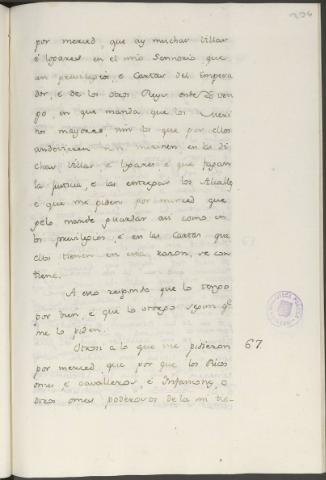 por merced, que ay muchas Villas
é lugares en el mio Sennorio, que
an privilegios, é Cartas del Empera-
dor, é de los otros Reyes onde Yo ven
go, en que manda que los Meri
nos mayores, nin los que por ellos
andovieren non merinen en las di
chas Villas é lugares é que fagan
la justicia, é las entregas los Alcalles
é que me piden por merced que
gelo mande guardar asi como en
los privilegios, é en las Cartas que
ellos tienen en esta razon, se con
tiene.
A esto respondo que lo tengo
por bien, é que lo otorgo segun qe
me lo piden.
Otrosi a lo que me pidieron
67
por merced, que por que los Ricos
omes, é cavalleros, é Infanzones, o
otros omes poderosos de la mi tie-